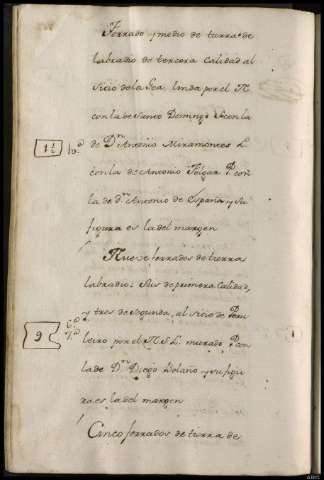 Ferrado y medio de tierra de
labradio de tercera calidad al
Sitio de la linda por el N.
con la de Santo Domingo S. con la
1½ de Dn. Antonio Miramontes L.
con la de Antonio Folgar P. con
la de dn. Antonio de España y su
figura es la del margen
Nueve ferrados de tierra
labradio: Seis de primera Calidad,
y tres de segunda, al sitio de
9 por el N. S. L. murado P. con
la de Dn. Diego Bolaño y su figu
ra es la del margen
Cinco ferrados de tierra de